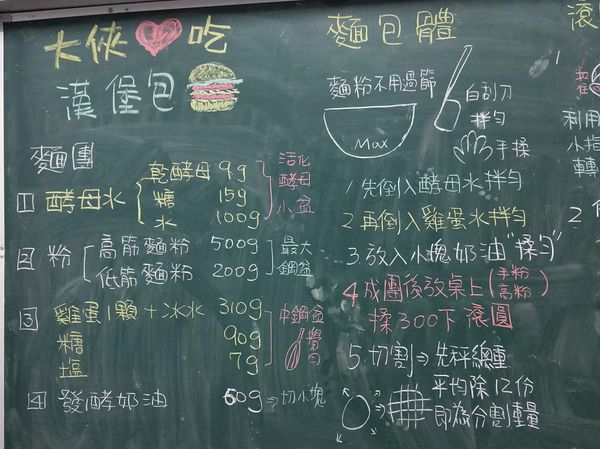 大俠吃
漢堡包
麵團
1 酵母水
乾酵母 9g
糖 15g
水 100g
活化
酵母
小盆
2 粉
高筋麵粉 500g
低筋麵粉 200g
最大
鋼盆
3 雞蛋1顆+冰水 310g
糖 90g
塩 7g
中鋼盆
4 發酵奶油 60g⇒切小塊
麵包體
麵粉不用過篩
Max
白刮刀
拌勻
手揉
1 先倒入酵母水拌勻
2 再倒入雞蛋水拌勻
3 放入小塊奶油"揉勻"
4 成團後放桌上(手粉 高粉)
揉300下滾圓
5. 切割⇒先秤總重
平均除12份
即為分割重量
滾
1
利用
小指
轉
2